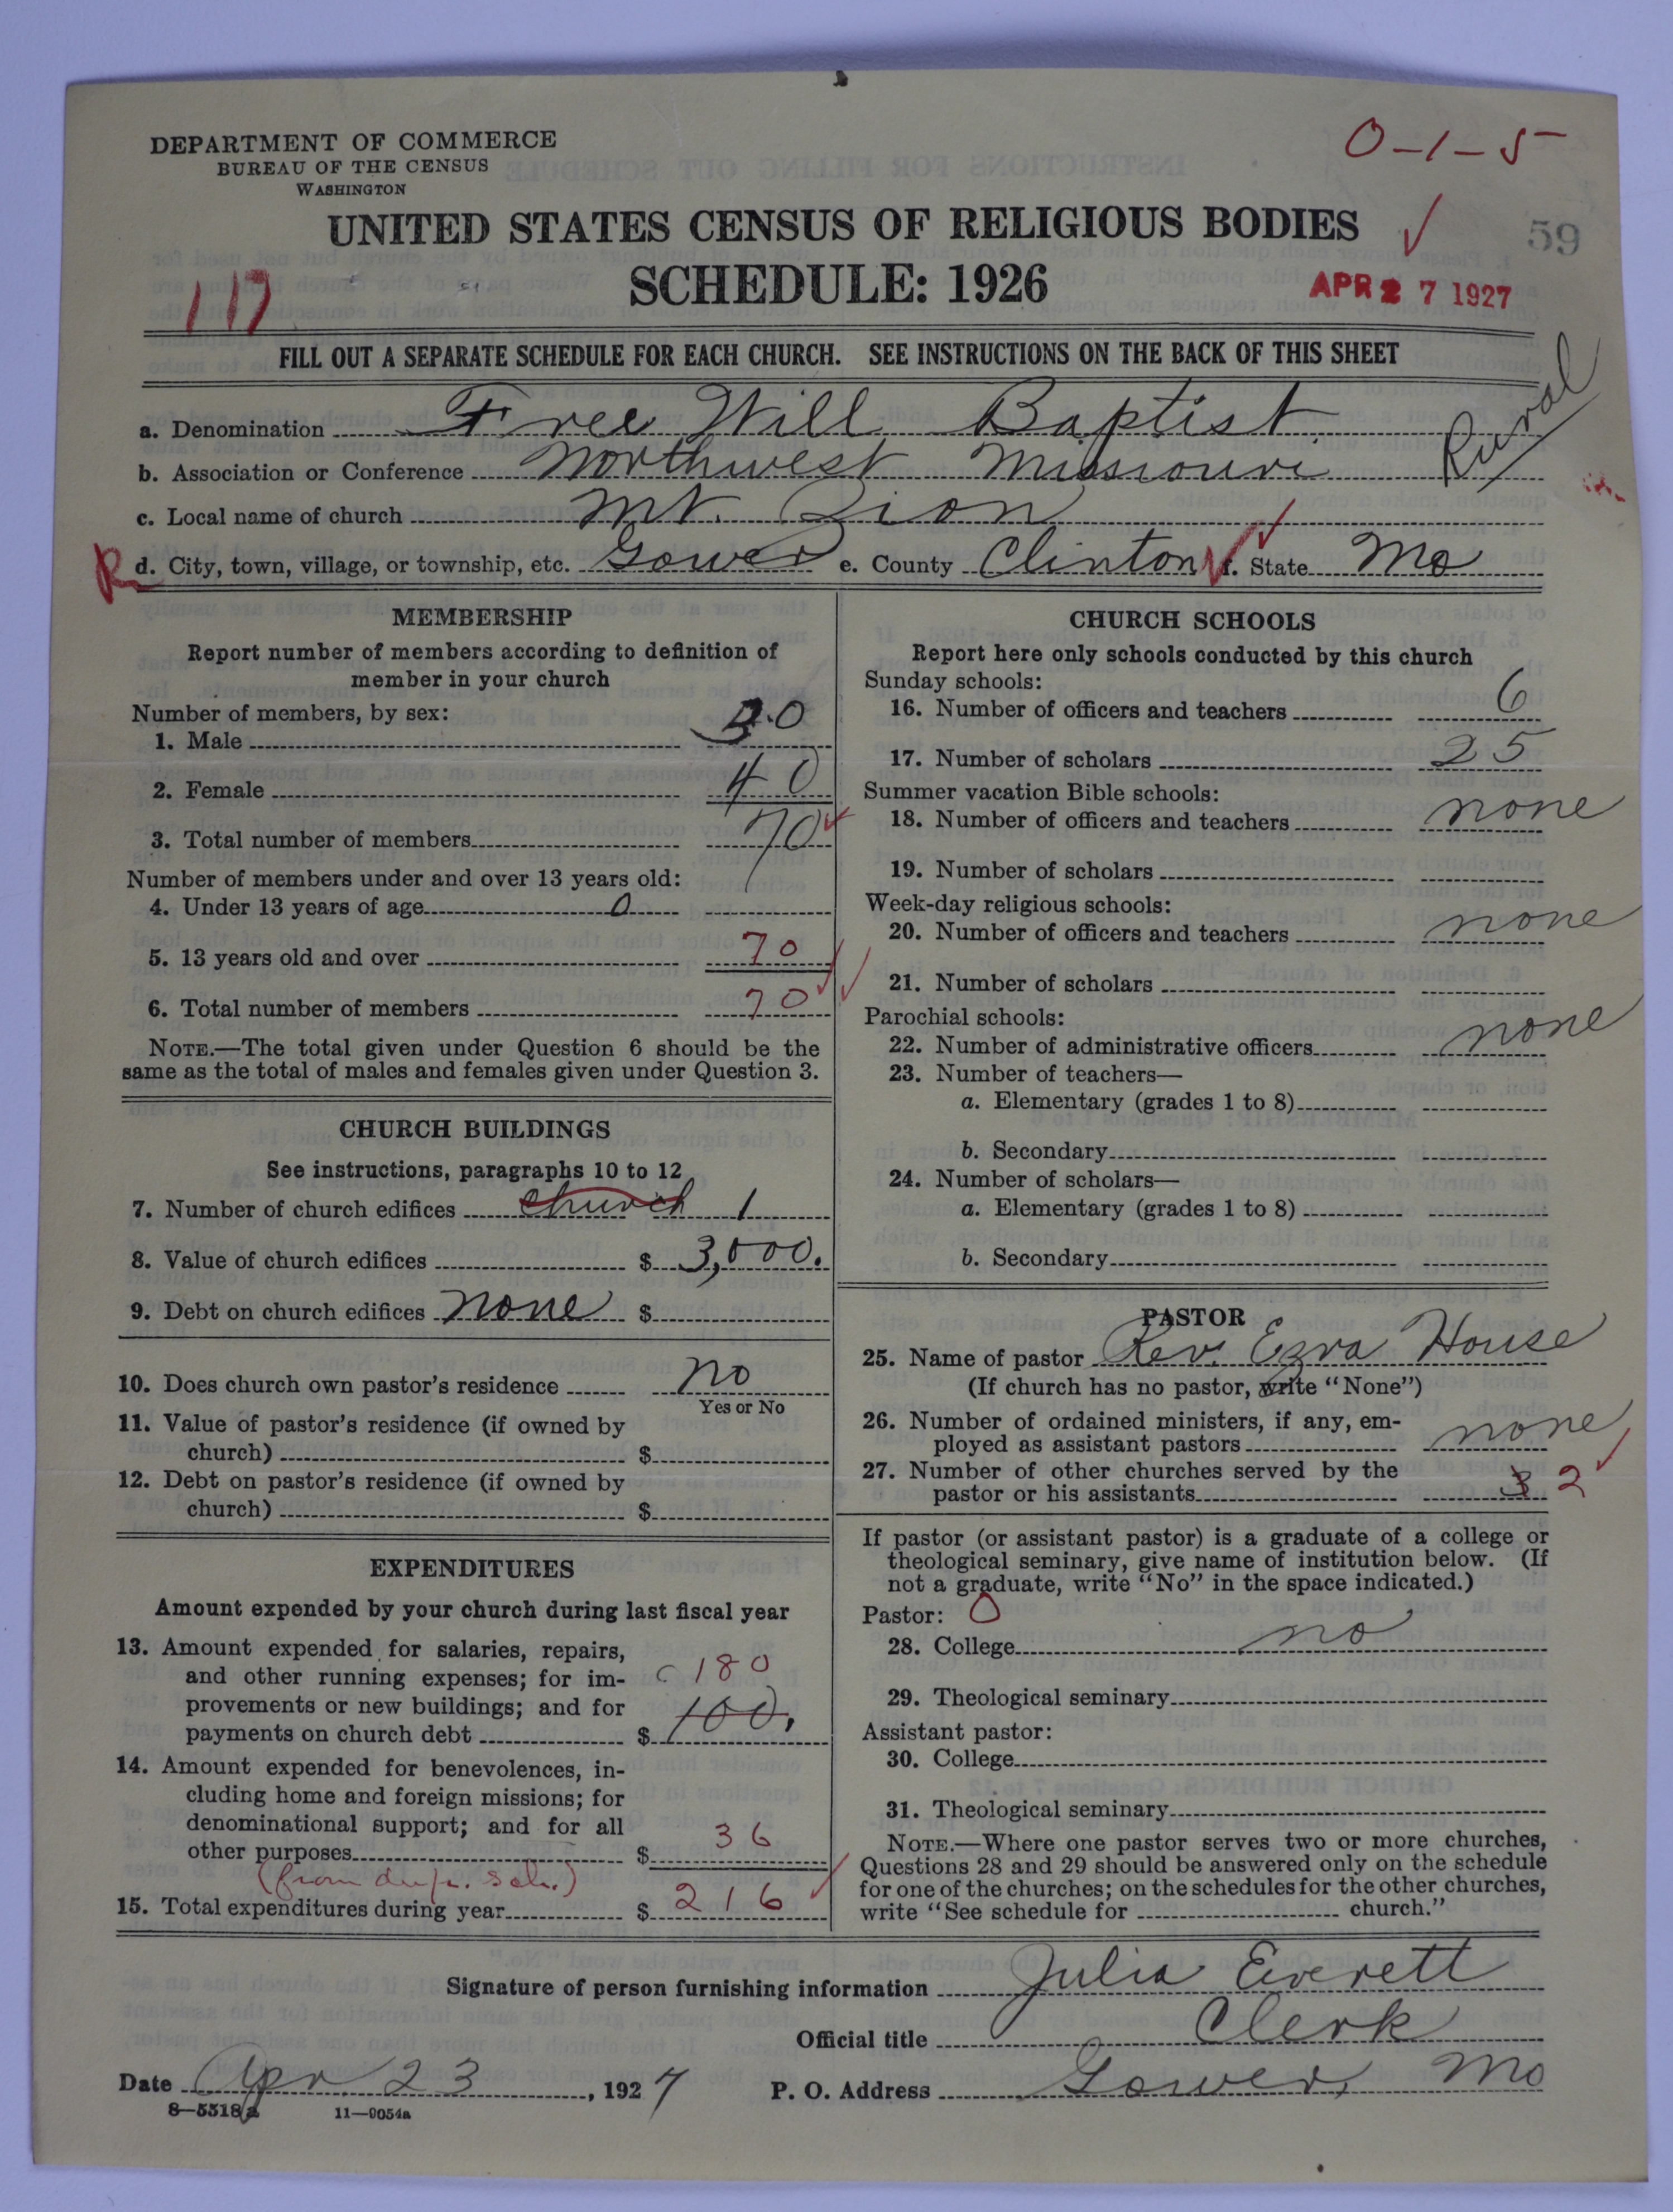 DEPARTMENT OF COMMERCE
BUREAU OF THE CENSUS
WASHINGTON
0-1-5
UNITED STATES CENSUS OF RELIGIOUS BODIES
59
SCHEDULE: 1926
117
APR 27 1927
FILL OUT A SEPARATE SCHEDULE FOR EACH CHURCH. SEE INSTRUCTIONS ON THE BACK OF THIS SHEET
Rural
a. Denomination Free Will Baptist
b. Association or Conference Northwest Missouri
c. Local name of church Mt. Zion
R d. City, town, village, or township, etc. Gower e. County Clinton f. State Mo
MEMBERSHIP
Report number of members according to definition of
member in your church
Number of members, by sex:
1. Male 30
2. Female 40
3. Total number of members 70
Number of members under and over 13 years old:
4. Under 13 years of age 0
5. 13 years old and over 70
6. Total number of members 70
NOTE.—The total given under Question 6 should be the
same as the total of males and females given under Question 3.
CHURCH BUILDINGS
See instructions, paragraphs 10 to 12
7. Number of church edifices church 1
8. Value of church edifices $ 3,000.
9. Debt on church edifices none $
10. Does church own pastor's residence no
Yes or No
11. Value of pastor's residence (if owned by
church) $
12. Debt on pastor's residence (if owned by
church) $
EXPENDITURES
Amount expended by your church during last fiscal year
13. Amount expended for salaries, repairs,
and other running expenses; for im-
c 180
provements or new buildings; and for
payments on church debt $ 100.
14. Amount expended for benevolences, in-
cluding home and foreign missions; for
denominational support; and for all
other purposes $ 36
(from dup. sch.)
15. Total expenditures during year $ 216
CHURCH SCHOOLS
Report here only schools conducted by this church
Sunday schools:
16. Number of officers and teachers 6
17. Number of scholars 25
Summer vacation Bible schools:
18. Number of officers and teachers none
19. Number of scholars
Week-day religious schools:
20. Number of officers and teachers none
21. Number of scholars
Parochial schools:
22. Number of administrative officers none
23. Number of teachers—
a. Elementary (grades 1 to 8)
b. Secondary
24. Number of scholars—
a. Elementary (grades 1 to 8)
b. Secondary
PASTOR
25. Name of pastor Rev. Ezra House
(If church has no pastor, write "None")
26. Number of ordained ministers, if any, em-
ployed as assistant pastors none
27. Number of other churches served by the
pastor or his assistants 3 2
If pastor (or assistant pastor) is a graduate of a college or
theological seminary, give name of institution below. (If
not a graduate, write "No" in the space indicated.)
Pastor: 0
28. College no
29. Theological seminary
Assistant pastor:
30. College
31. Theological seminary
NOTE.—Where one pastor serves two or more churches,
Questions 28 and 29 should be answered only on the schedule
for one of the churches; on the schedules for the other churches,
write "See schedule for church."
Signature of person furnishing information Julia Everett
Official title Clerk
Date Apr. 23, 1927 P. O. Address Gower, Mo
8—5518a 11—9054a